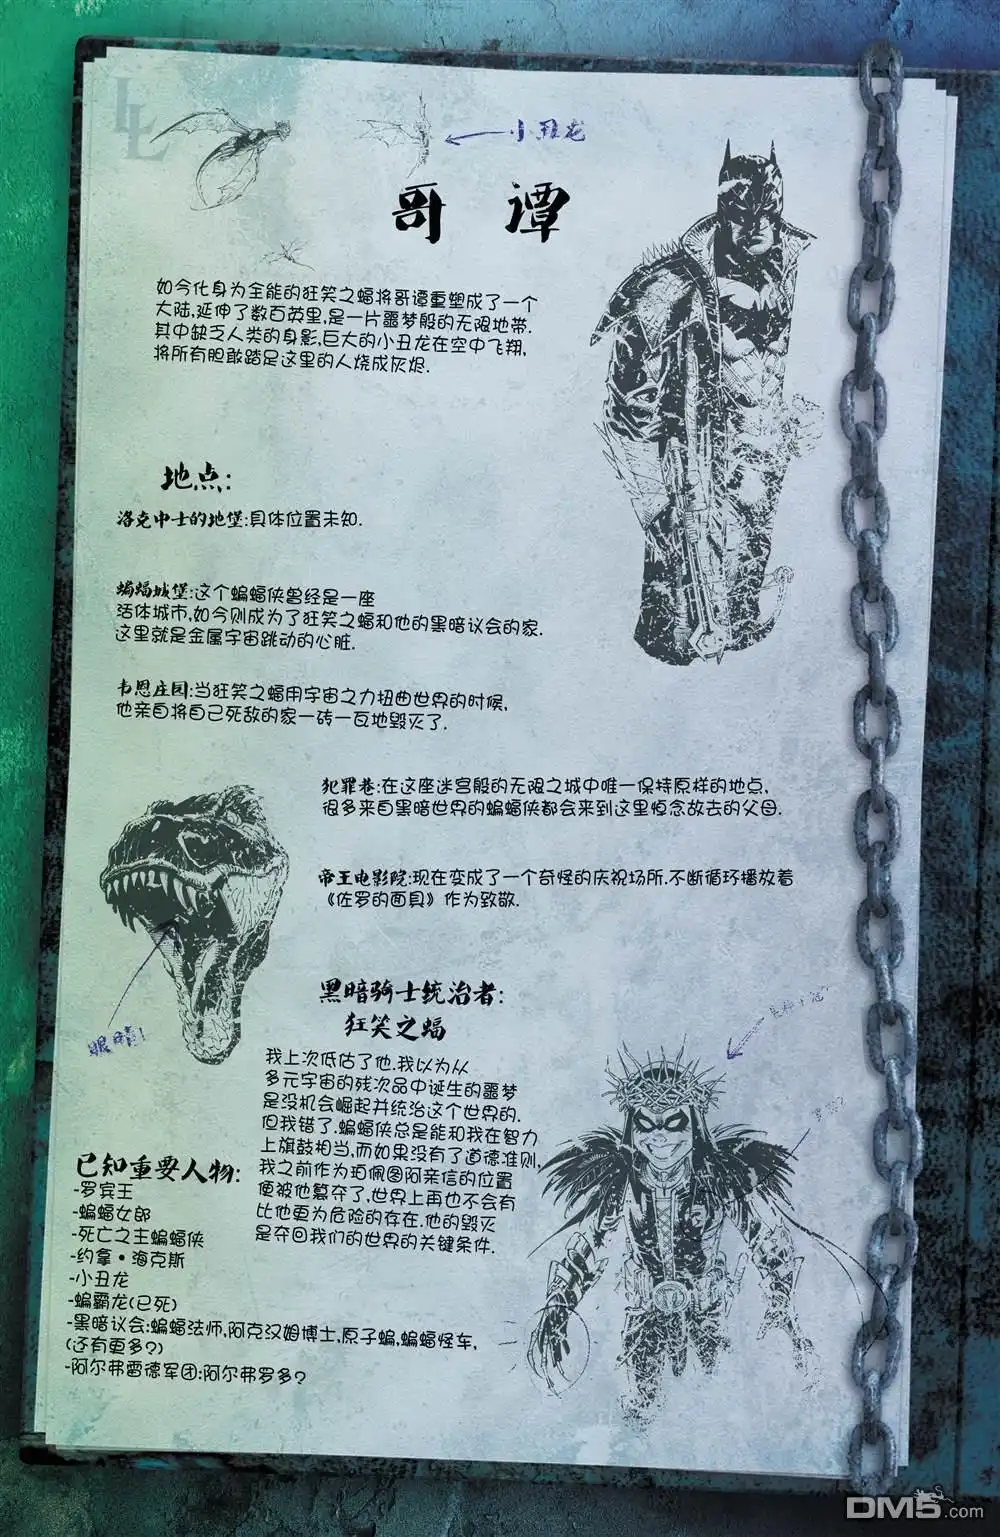 LL
小丑龙
哥 谭
如今化身为全能的狂笑之蝠将哥谭重塑成了一个
大陆,延伸了数百英里,是一片噩梦般的无限地带.
其中缺乏人类的身影,巨大的小丑龙在空中飞翔,
将所有胆敢踏足这里的人烧成灰烬.
地点:
洛克中士的地堡:具体位置未知.
蝙蝠城堡:这个蝙蝠侠曾经是一座
活体城市,如今则成为了狂笑之蝠和他的黑暗议会的家.
这里就是金属宇宙跳动的心脏.
韦恩庄园:当狂笑之蝠用宇宙之力扭曲世界的时候,
他亲自将自己死敌的家一砖一瓦地毁灭了.
犯罪巷:在这座迷宫般的无限之城中唯一保持原样的地点,
很多来自黑暗世界的蝙蝠侠都会来到这里悼念故去的父母.
帝王电影院:现在变成了一个奇怪的庆祝场所.不断循环播放着
《佐罗的面具》作为致敬.
眼睛!
黑暗骑士统治者:
狂笑之蝠
我上次低估了他.我以为从
多元宇宙的残次品中诞生的噩梦
是没机会崛起并统治这个世界的.
但我错了.蝙蝠侠总是能和我在智力
上旗鼓相当,而如果没有了道德准则,
我之前作为珀佩图阿亲信的位置
便被他篡夺了,世界上再也不会有
比他更为危险的存在.他的毁灭
是夺回我们的世界的关键条件.
已知重要人物:
-罗宾王
-蝙蝠女郎
-死亡之主蝙蝠侠
-约拿·海克斯
-小丑龙
-蝙霸龙(已死)
-黑暗议会:蝙蝠法师,阿克汉姆博士,原子蝙,蝙蝠怪车,
(还有更多?)
-阿尔弗雷德军团:阿尔弗罗多?
DM5.com